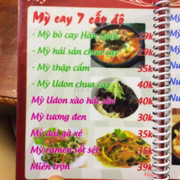 Mỳ cay 7 cấp độ
- Mỳ bò cay Hàn 39k
- Mỳ hải sản chua cay 39k
- Mỳ thập cẩm 35k
- Mỳ Udon chua cay 40k
Mỳ Udon xào hải sản 40k
Mỳ tương đen 30k
Mỳ đùi gà xé 35k
Mỳ ramen sốt sệt 35k
Miến trộn 39k